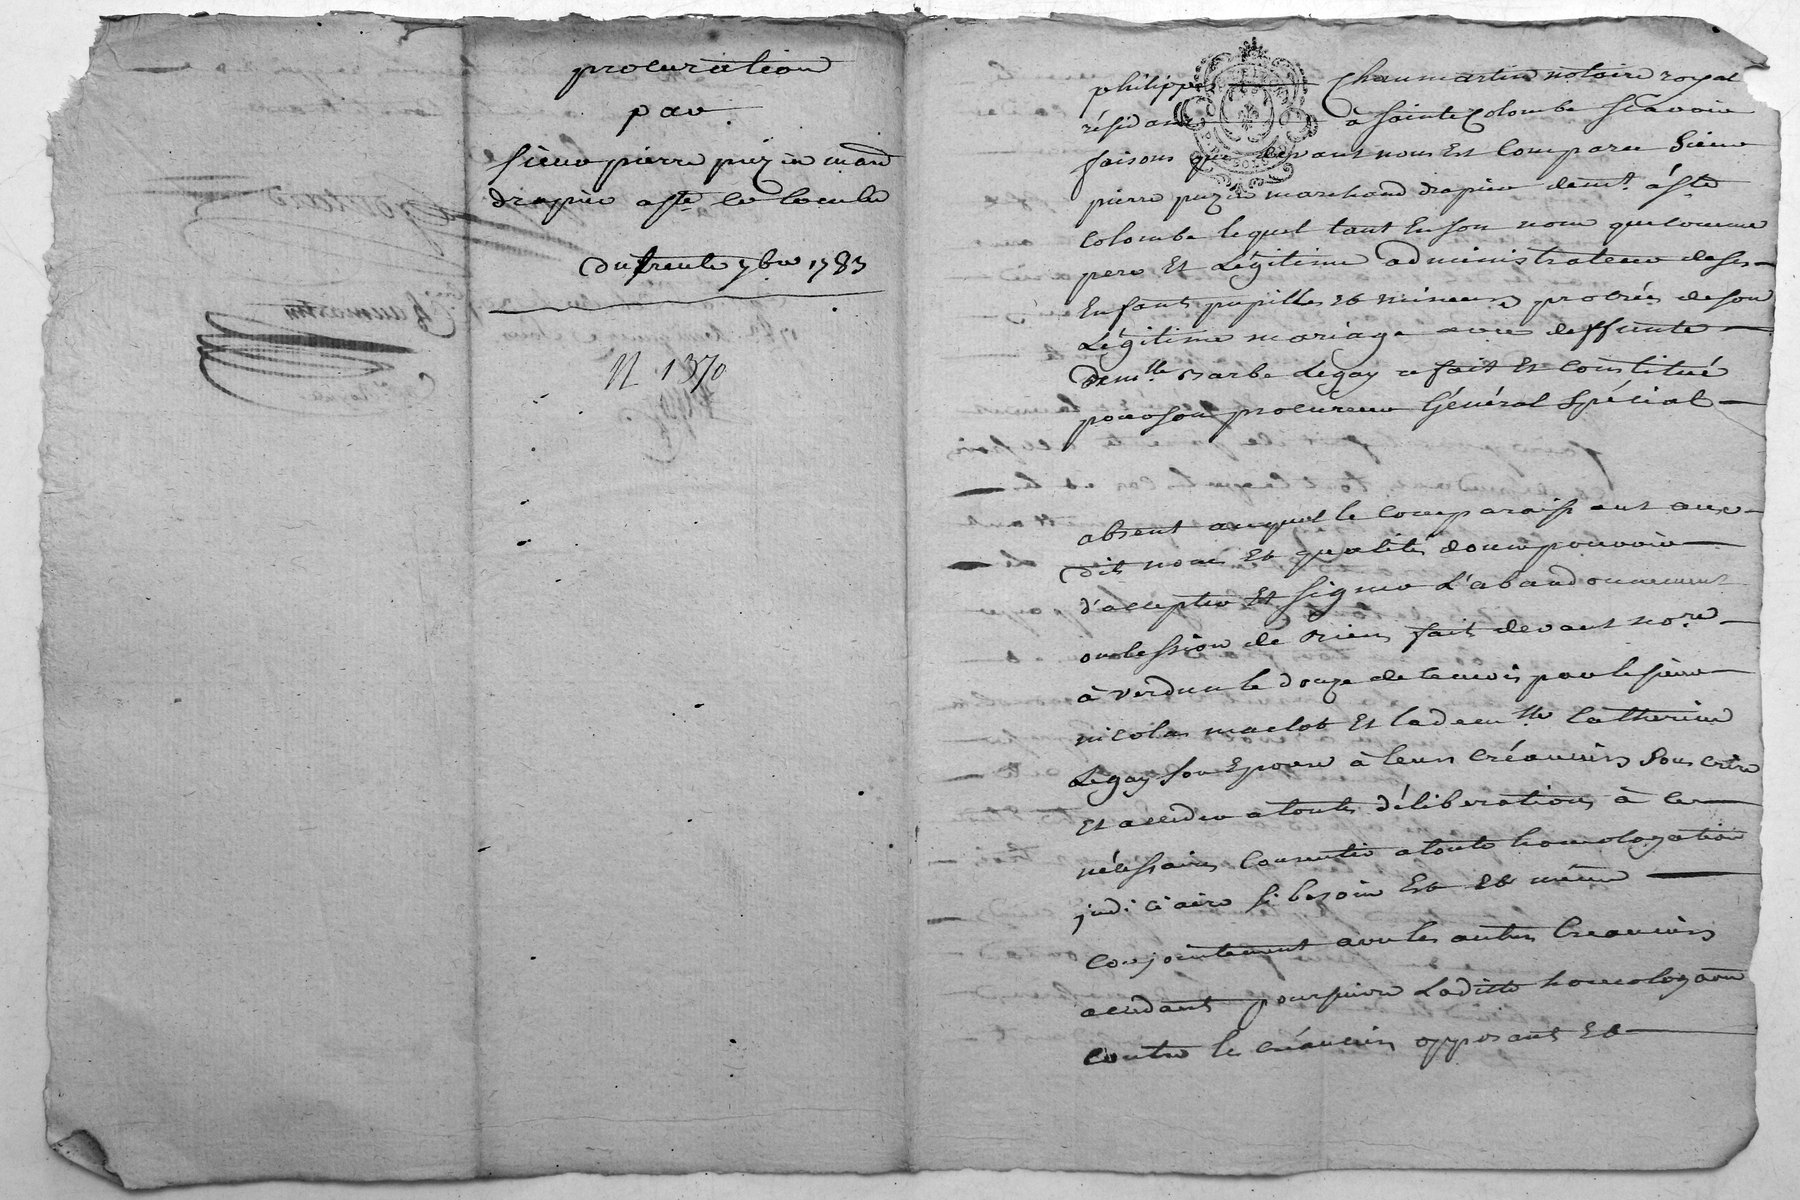 procuration
par
Sieur pierre puzin mard
drapier a Ste Colombe
du trente 7bre 1783
N 1370
philippe Chaumartin notaire royal
résidant à Sainte Colombe Scavoir
faisons que devant nous Est Comparu Sieur
pierre puzin marchand drapier demt à Ste
Colombe lequel tant En son nom que comme
pere Et Légitime administrateur de ses
Enfants pupilles et mineurs procréés de son
Légitime mariage avec deffunte
Demlle Barbe Legay a fait Et Constitué
pour son procureur Général Spécial
absent auquel le comparaissant aux
dits noms Et qualités donne pouvoir
d'accepter Et Signer L'abandonnement
ou Cession de Biens fait devant nore
à Verdun le douze de ce mois par le sieur
nicolas maclot Et la demlle Catherine
Legay Son Epouse à leurs Créanciers Souscrire
Et acceder a toutes déliberations à ce
nécessaires Consentir a toute homologation
judiciaire Si besoin Est Et même
Conjointement avec les autres Creanciers
accedants poursuivre Laditte homologaon
contre les créanciers opposants Et
Chaumartin